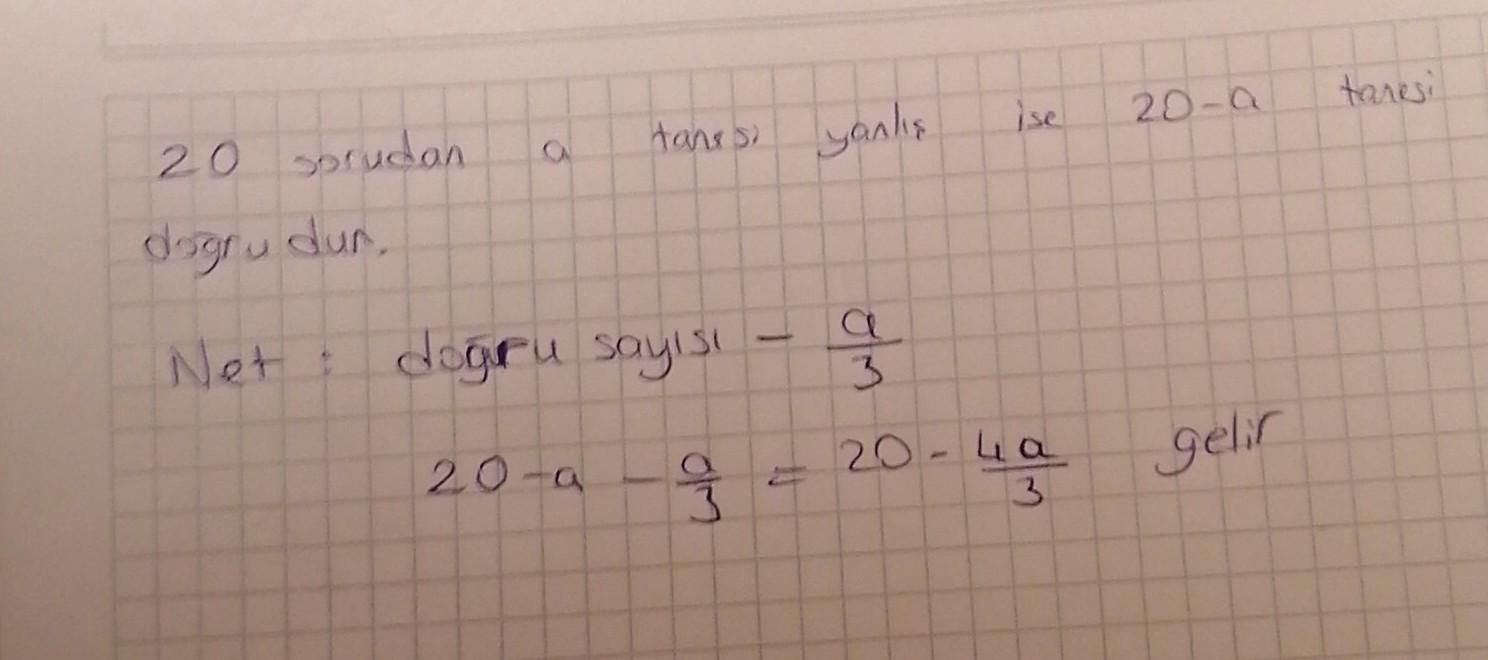 20 sorudan a tanesi yanlış ise 20-a tanesi
doğrudur.
Net : doğru sayısı - a/3
20-a - a/3 = 20 - 4a/3 gelir